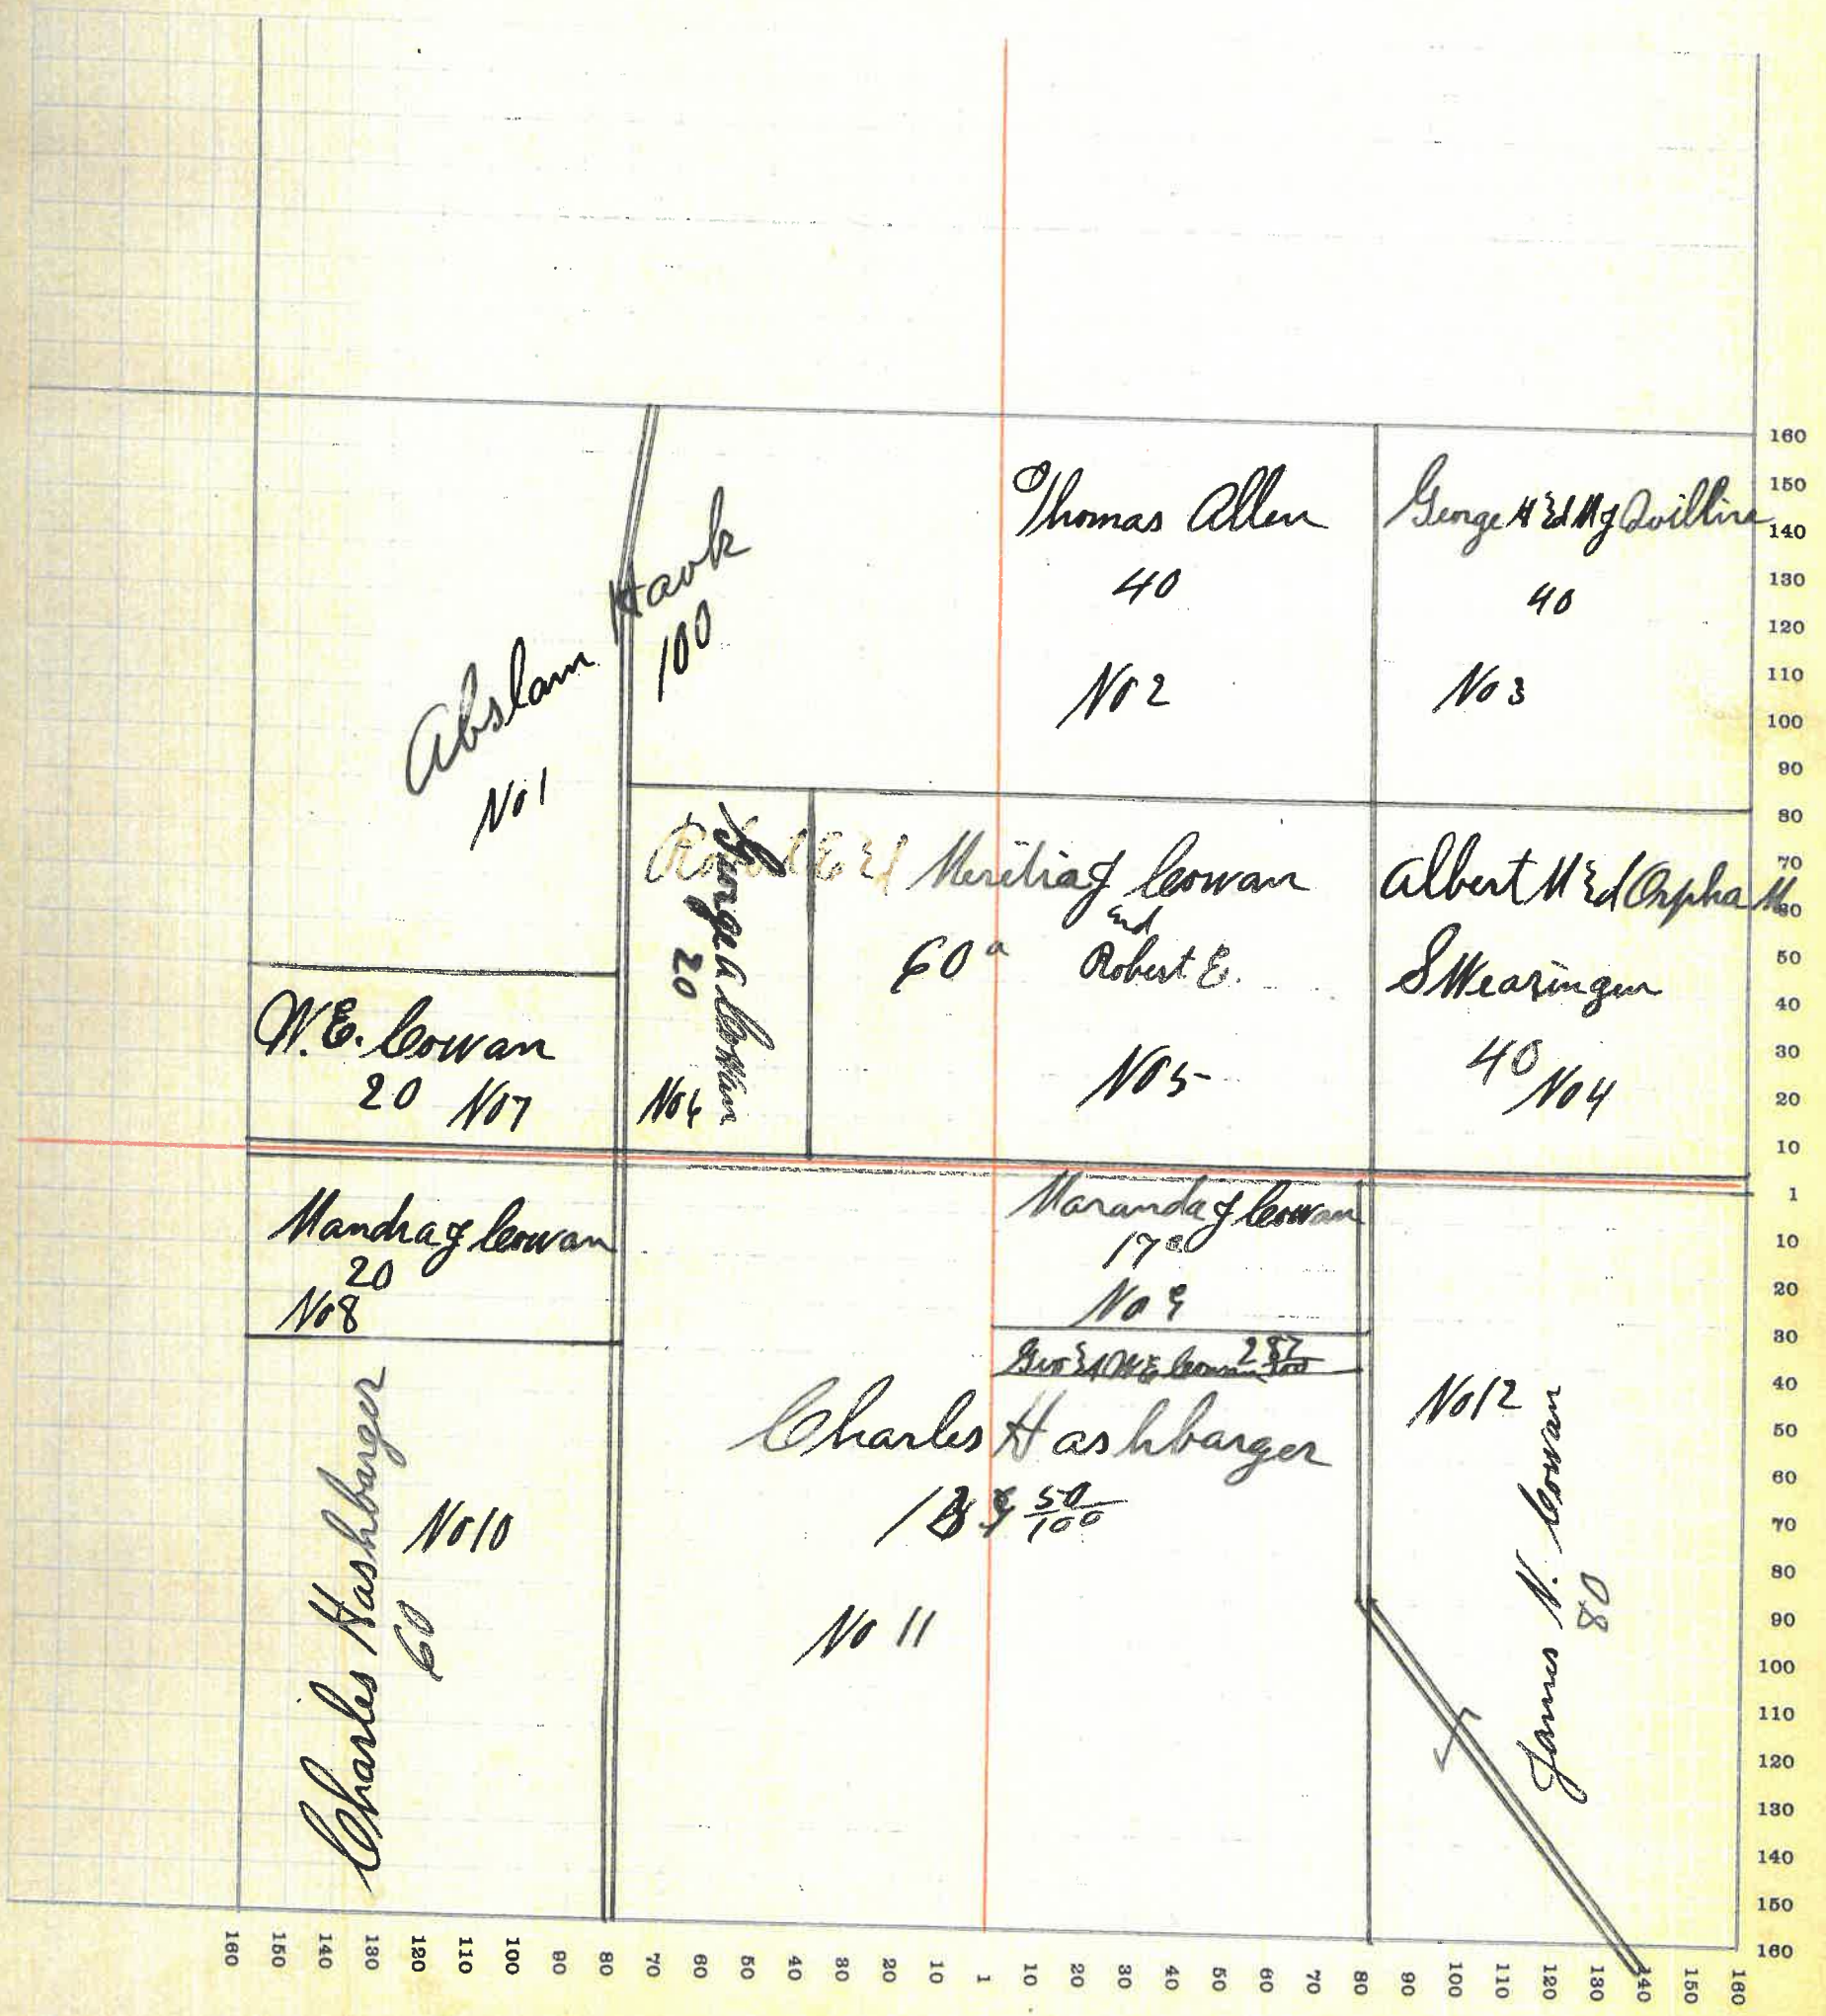 Abslam Hawk
100
No 1
Thomas Allen
40
No 2
George H Ed M J
40
No 3
Albert M Ed Orpha M
SWearingen
40
No 4
Robert E Ed Merilia J Cowan
End
Robert E.
60 a
No 5
George A Cowan
20
No 6
W. E. Cowan
20 No 7
Mandra J Cowan
20
No 8
Maranda J Cowan
17 a
No 9
Geo Ed W E Cowan 2 87/100
Charles Hashbarger
60
No 10
Charles Hashbarger
50/100
No 11
No 12
James N. Cowan
80
160
150
140
130
120
110
100
90
80
70
60
50
40
30
20
10
1
10
20
30
40
50
60
70
80
90
100
110
120
130
140
150
160
160 150 140 130 120 110 100 90 80 70 60 50 40 30 20 10 1 10 20 30 40 50 60 70 80 90 100 110 120 130 140 150 160